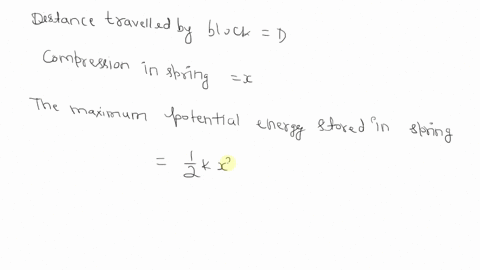 Distance travelled by block = D
Compression in spring = x
The maximum potential energy stored in spring
= 1/2 k x²